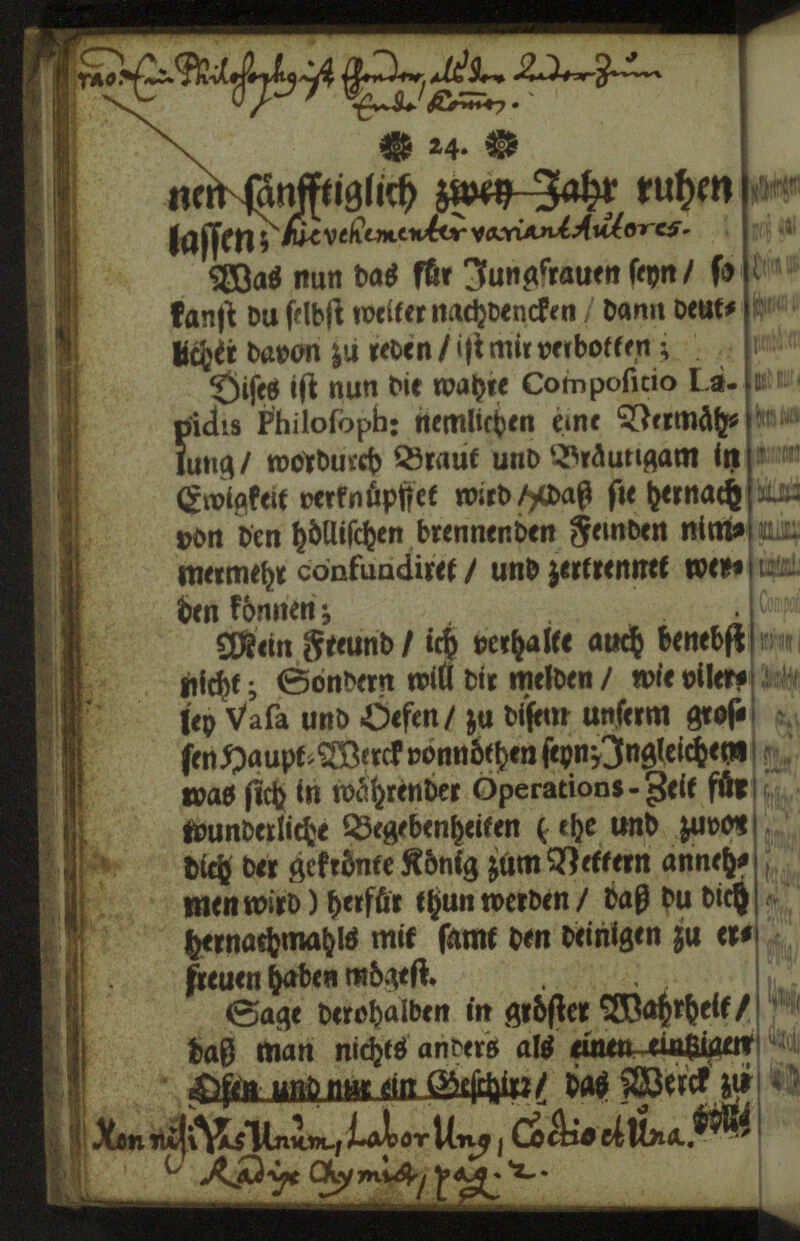 24.
nen sänfftiglich zwey Jahr ruhen
lassen; hic vehementer variant Autores.
Was nun das für Jungfrauen seyn / so
kanst du selbst weiter nachdencken / dann deut-
licher davon zu reden / ist mir verbotten;
Dises ist nun die wahre Compositio La-
pidis Philosoph: nemlichen eine Vermäh-
lung / wordurch Braut und Bräutigam in
Ewigkeit verknüpffet wird / daß sie hernach
von den höllischen brennenden Feinden nim-
mermehr confundiret / und zertrennet wer-
den können;
Mein Freund / ich verhalte auch benebst
nicht; Sondern will dir melden / wie viler-
ley Vasa und Oefen / zu disem unserm gros-
sen Haupt-Werck vonnöthen seyn; Ingleichem
was sich in währender Operations-Zeit für
wunderliche Begebenheiten (ehe und zuvor
dich der gekrönte König zum Vettern anneh-
men wird) herfür thun werden / daß du dich
hernachmahls mit samt den deinigen zu er-
freuen haben mögest.
Sage derohalben in gröster Wahrheit /
daß man nichts anders als einen eintzigen
Ofen und nur ein Geschirr / das Werck zu
Non nisi Vas Unum, Labor Unq, Coctio et Una.
Chymiae, pag. 2.